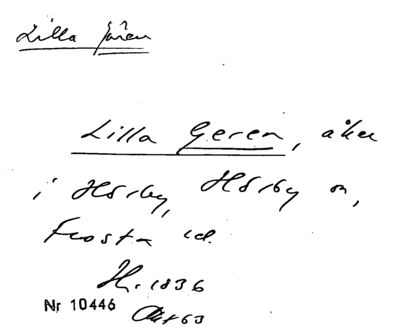 Lilla Gären
Lilla Geren, åker
i Hörby, Hörby sn,
Frosta hd.
Hy. 1836
Nr 10446
Akt 63